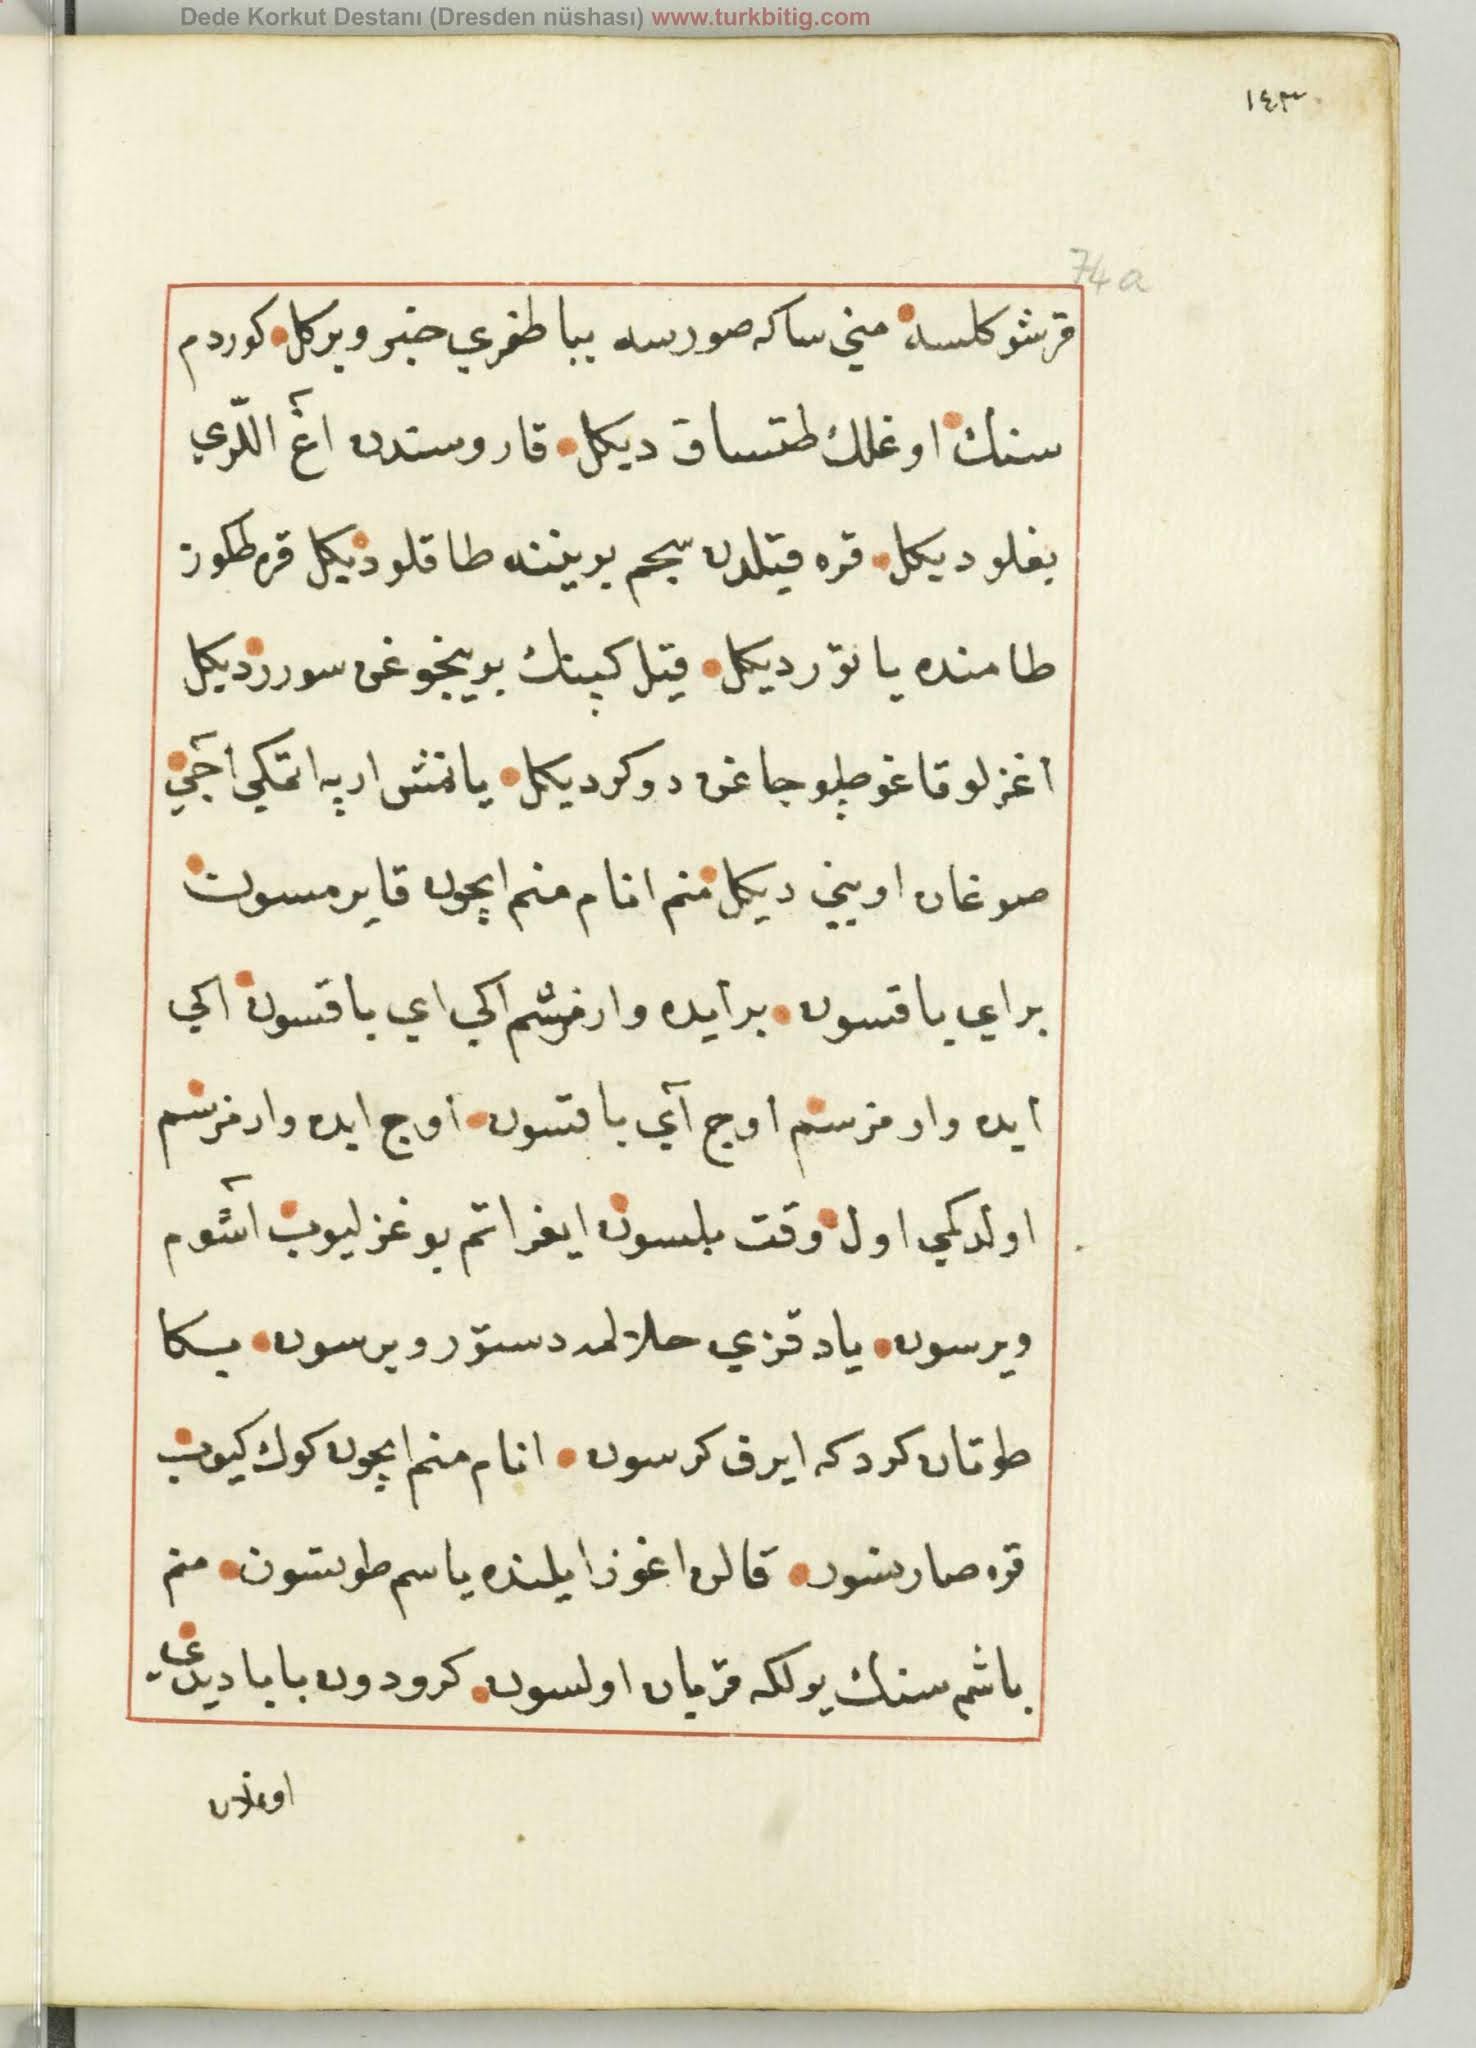 Dede Korkut Destanı (Dresden nüshası) www.turkbitig.com
١٤٣
74a
قرشو كلسه مني ساكه صورسه ببا طغري خبر ويركل كوردم
سنك اوغلك طتساق ديكل قاروسندن اغ اللري
بغلو ديكل قره قيلدن سجم بويننه طاقلو ديكل قره طكوز
طامنده ياتور ديكل قيل كپنك بوينجوغن سوررديكل
اغزلو قاغو طپوجاغن دوكرديكل يانمش ارپه اتمكي اجي
صوغان اويني ديكل منم انام منم ايچون قايرمسون
براي باقسون برايده وارمزسم اكي اي باقسون اكي
ايده وارمزسم اوج آي باقسون اوج ايده وارمزسم
اولدكمي اول وقت بلسون ايغر اتم بوغزليوب آشوم
ويرسون ياد قزي حلالمه دستور ويرسون بكا
طوتان كردكه ايرق كرسون انام منم ايچون كوك كيوب
قره صارنسون قالن اغوز ايلنده ياسم طوتسون منم
باشم سنك يولكه قربان اولسون كرودون بابا ديدي
اوغلان